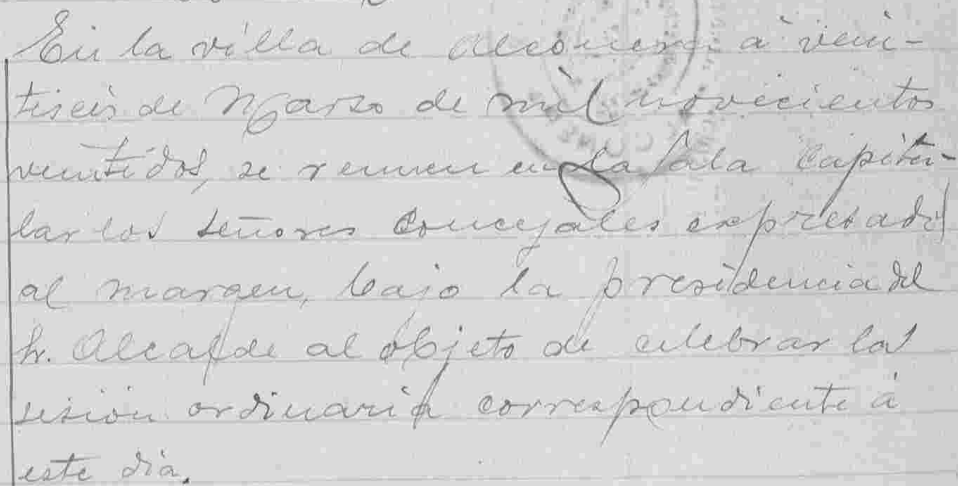 En la villa de Alconera à vein-
tiseis de Marzo de mil novecientos
veintidos, se reunen en la Sala Capitu-
lar los señores Concejales expresados
al margen, bajo la presidencia del
Sr. Alcalde al objeto de celebrar la
sesión ordinaria correspondiente á
este dia.